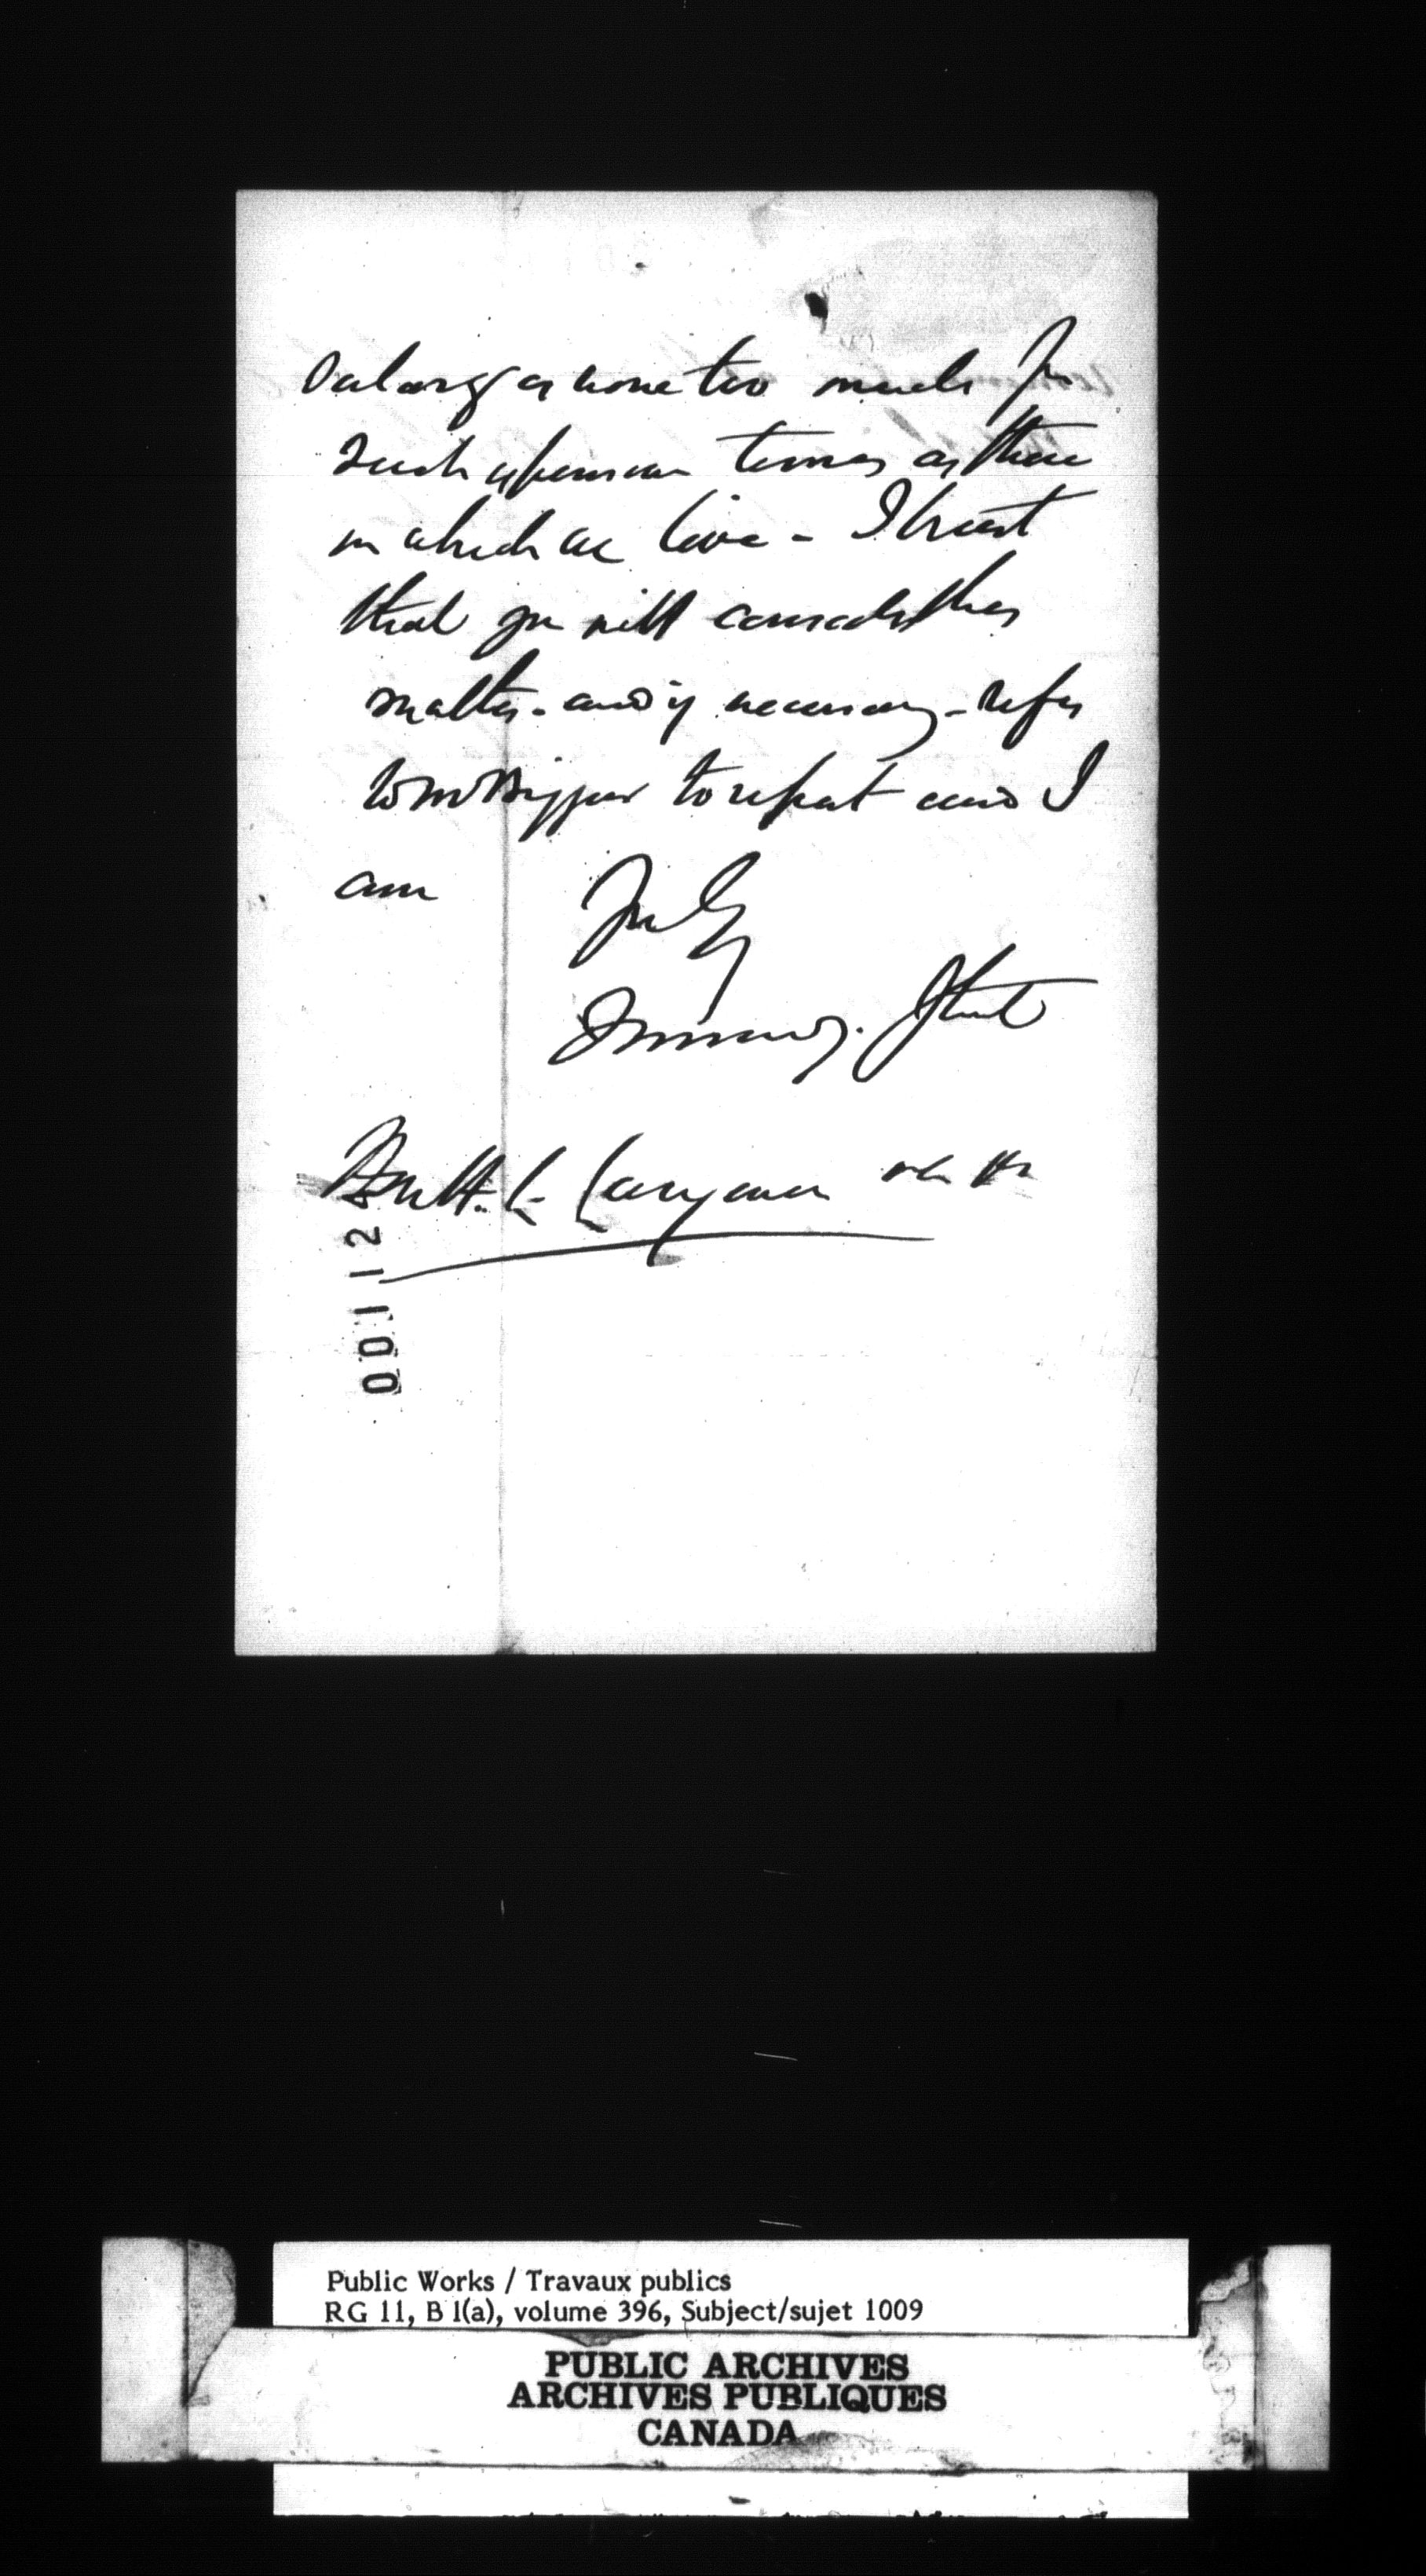 salary is none too much for
such expensive times as these
in which we live - I trust
that you will consider this
matter - and if necessary - refer
to Mr to report and I
am
Truly
Street
Hon H. L. Langevin
001124
Public Works / Travaux publics
RG 11, B 1(a), volume 396, Subject/sujet 1009
PUBLIC ARCHIVES
ARCHIVES PUBLIQUES
CANADA